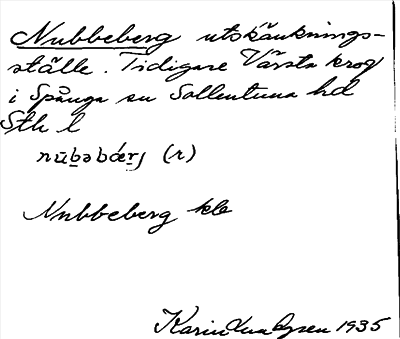 Nubbeberg utskänknings-
ställe. Tidigare Värsta krog
i Spånga sn Sollentuna hd
Sth l
nūbəbǽrj (r)
Nubbeberg kle
Karin 1935